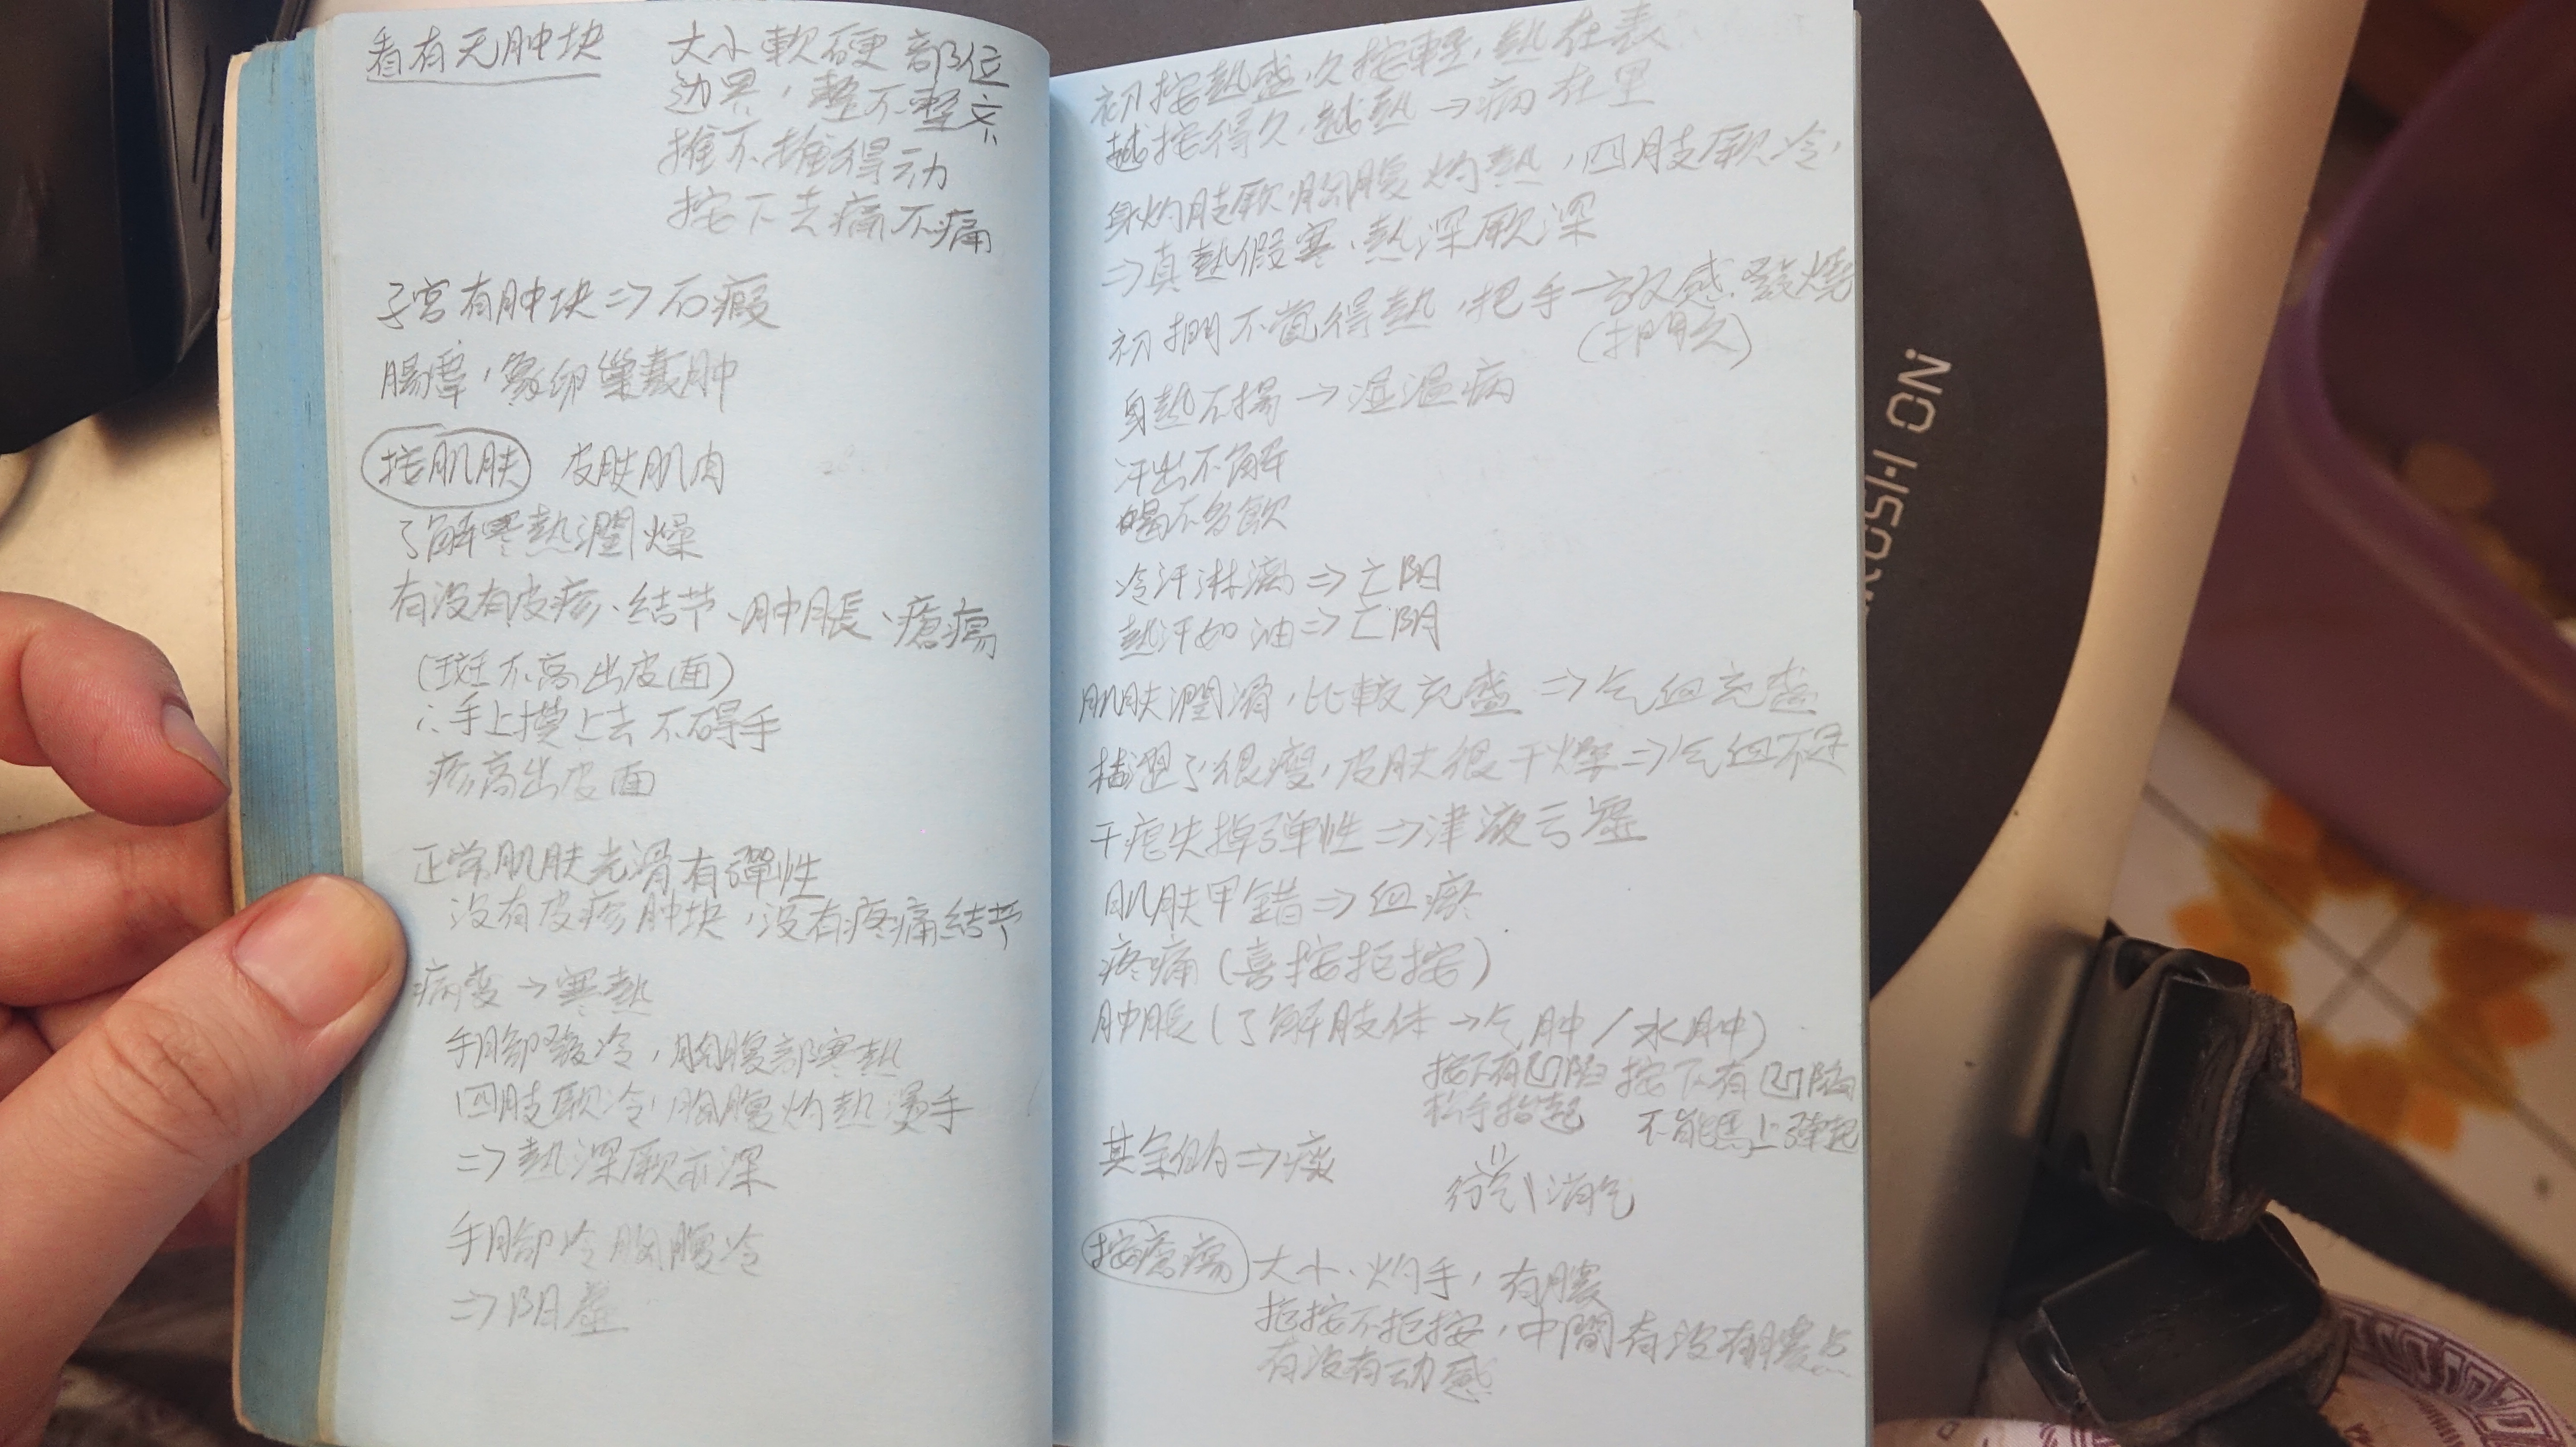 看有无肿块 大小軟硬部位
边界，整不整齐
推不推得动
按下去痛不痛
子宫有肿块⇒石瘕
腸覃，象卵巢囊肿
按肌肤 皮肤肌肉
了解寒熱潤燥
有沒有皮疹、结节、肿脹、瘡瘍
(斑不高出皮面)
∴手上摸上去不碍手
疹高出皮面
正常肌肤光滑有彈性
沒有皮疹肿块，沒有疼痛结节
病变→寒熱
手腳發冷，胸腹部寒熱
四肢厥冷，胸腹灼熱燙手
⇒熱深厥亦深
手腳冷胸腹冷
⇒阴虛
初按熱盛，久按輕，熱在表
越按得久，越熱→病在里
身灼肢厥，胸腹灼熱，四肢厥冷，
⇒真熱假寒、熱深厥深
初捫不覚得熱，把手一放感發燒
(捫久)
身熱不揚→湿温病
汗出不解
喝不多飲
冷汗淋漓⇒亡阳
熱汗如油⇒亡阴
肌肤潤滑，比較充盛⇒气血充盛
很瘦，皮肤很干燥⇒气血不足
干疤失掉弹性⇒津液亏虛
肌肤甲錯⇒血瘀
疼痛(喜按拒按)
肿脹(了解肢体→气肿/水肿)
按下有凹陷 按下有凹陷
松手抬起 不能馬上弹起
其余的⇒痰
行气 消气
按瘡瘍 大小、灼手，有膿
拒按不拒按，中間有沒有膿点
有沒有动感
YOSHI ON